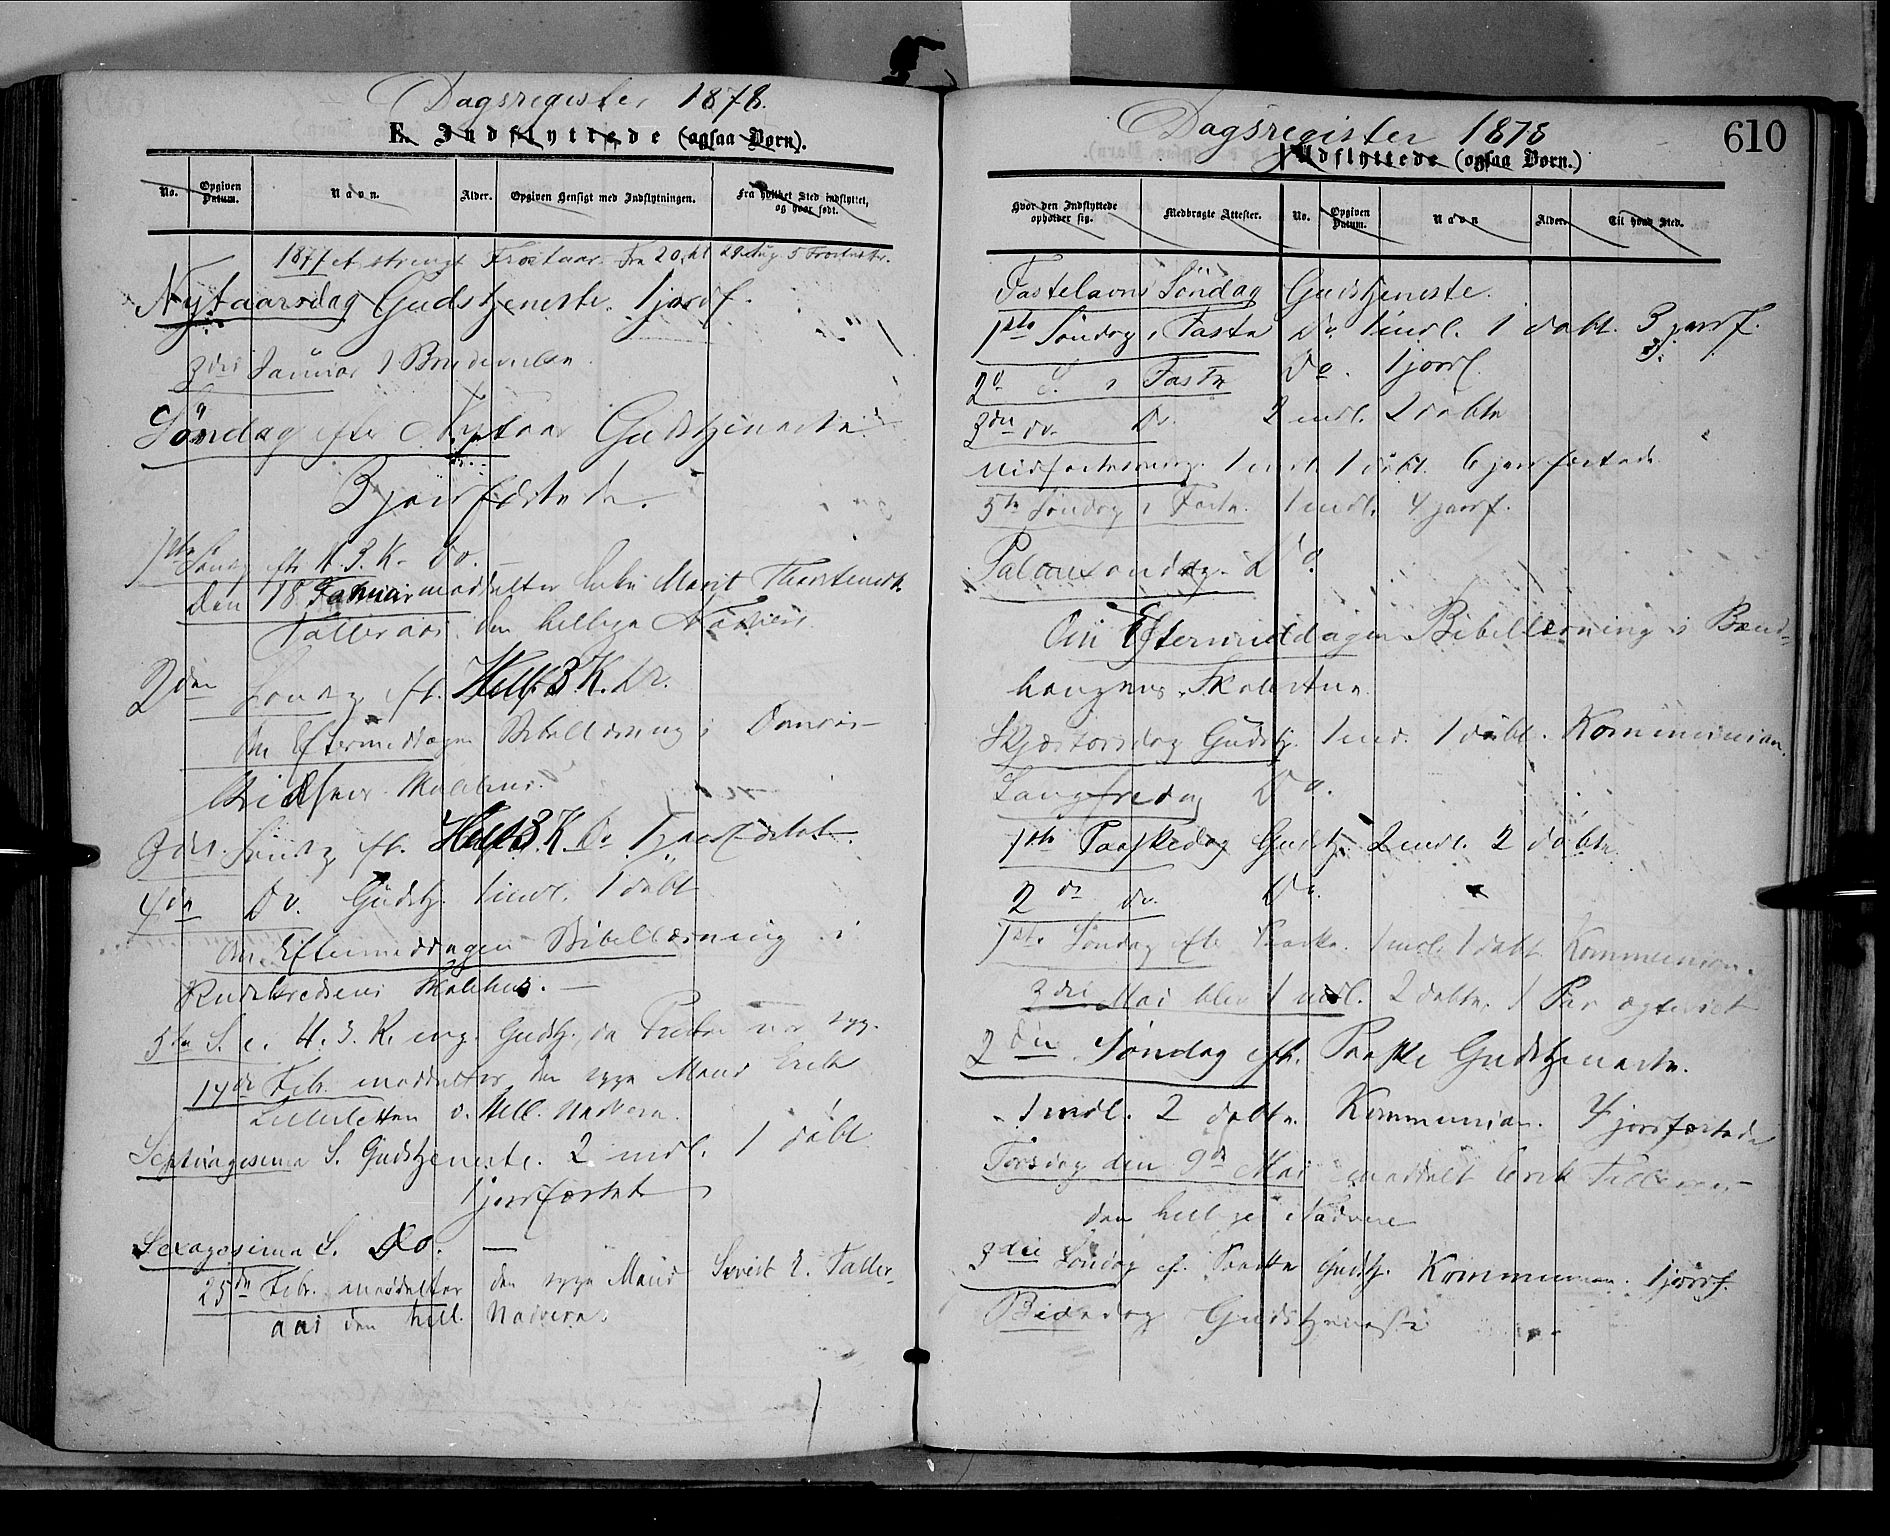 Dagsregister 1878.
E. Indflyttede (ogsaa Børn).
No.
Opgiven Datum.
Navn.
Alder.
Opgiven Hensigt med Indflytningen.
Fra hvilket Sted indflyttet, og hvor født.
1877 et strengt Frostaar. Fra 20 til 29 Aug. 5 Frostnætter.
Nytaarsdag Gudstjeneste. 1 jordf.
3die Januar 1 Brudevielse.
Søndag efter Nytaar Gudstjeneste
3 jordfæstede.
1ste Søndag eft. H. 3. K. Do.
Den 18 Januar meddeltes Marit Thorstensd.
den hellige Nadvere.
2den Søndag eft. Hell. 3 K. Do.
Om Eftermiddagen Bibellæsning i
Skolehus.
3die Søndag eft. Hell. 3 K. Do 1 jordfæstet.
4de Do. Gudstj. 1 indl. 1 døbt
Om Eftermiddagen Bibellæsning i
Skolehus.
5te S. e. H. 3. K. ing. Gudstj., da Præsten var syg.
14de Febr. meddeltes den syge Mand Erik
d. Hell. Nadvere.
Septuagesima S. Gudstjeneste. 2 indl. 1 døbt
1 jordfæstet
Sexagesima S. Do.
25de Febr. meddeltes den syge Mand Sivert E. Taller-
aas den hell. Nadvere.
Dagsregister 1878
610
Udflyttede (ogsaa Børn.)
Hvor den Indflyttede opholder sig.
Medbragte Attester.
No.
Opgiven Datum.
Navn
Alder.
Til hvad Sted.
Fastelavns Søndag Gudstjeneste.
1ste Søndag i Faste Do. 1 indl. 1 døbt. 3 jordf.
2den S. i Faste Do. 1 jordf.
3die do. Do. 2 indl. 2 døbte
Midfastesøndag. 1 indl. 1 døbt. 6 jordfæstede
5te Søndag i Faste. 1 indl. 4 jordf.
Palmesøndag. Do.
Om Eftermiddagen Bibellæsning i
Skolestue.
Skjærtorsdag Gudstj. 1 indl. 1 døbt. Kommunion.
Langfredag Do.
1ste Paaskedag Gudstj. 2 indl. 2 døbte
2den do. Do.
1ste Søndag efter Paaske. 1 indl. 1 døbt. Kommunion.
3die Mai blev 1 indl. 2 døbte, 1 Par ægteviet
2den Søndag eft. Paaske Gudstjeneste.
1 indl. 2 døbte. Kommunion. 4 jordfæstede
Torsdag den 9de Mai meddelt Erik
den hellige Nadvere
3die Søndag ef. Paaske Gudstj. Kommunion. 1 jordf.
Bededag Gudstjeneste